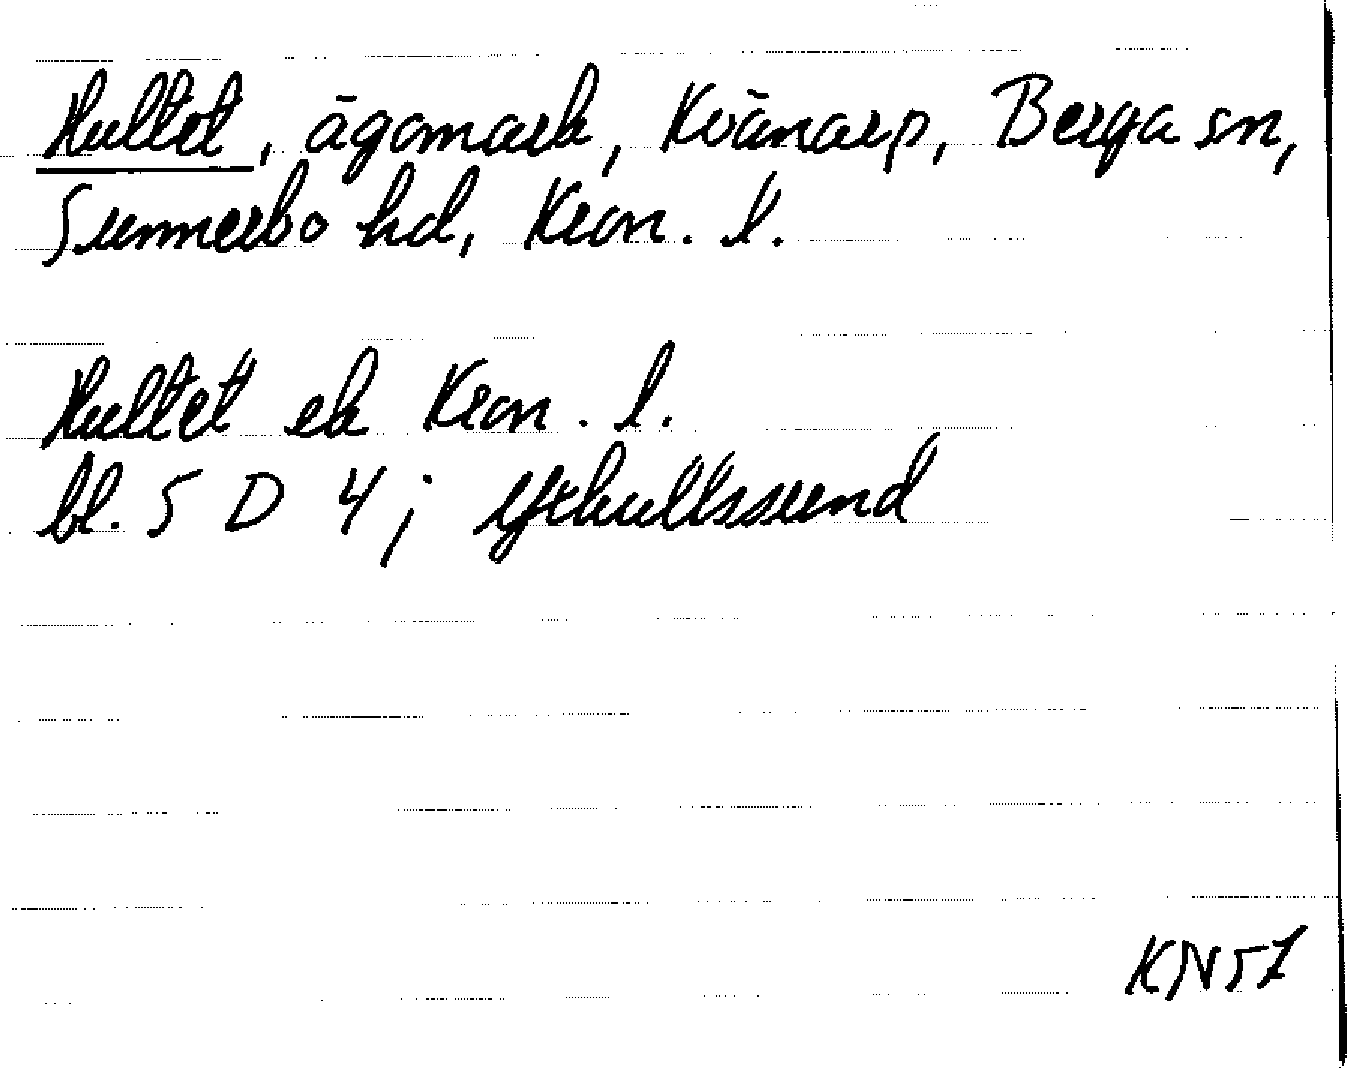 Hultet, ägomark, Kvänarp, Berga sn,
Sunnerbo hd, Kron. l.
Hultet ek Kron. l.
bl. 5 D 4; Yxkullssund
KN57